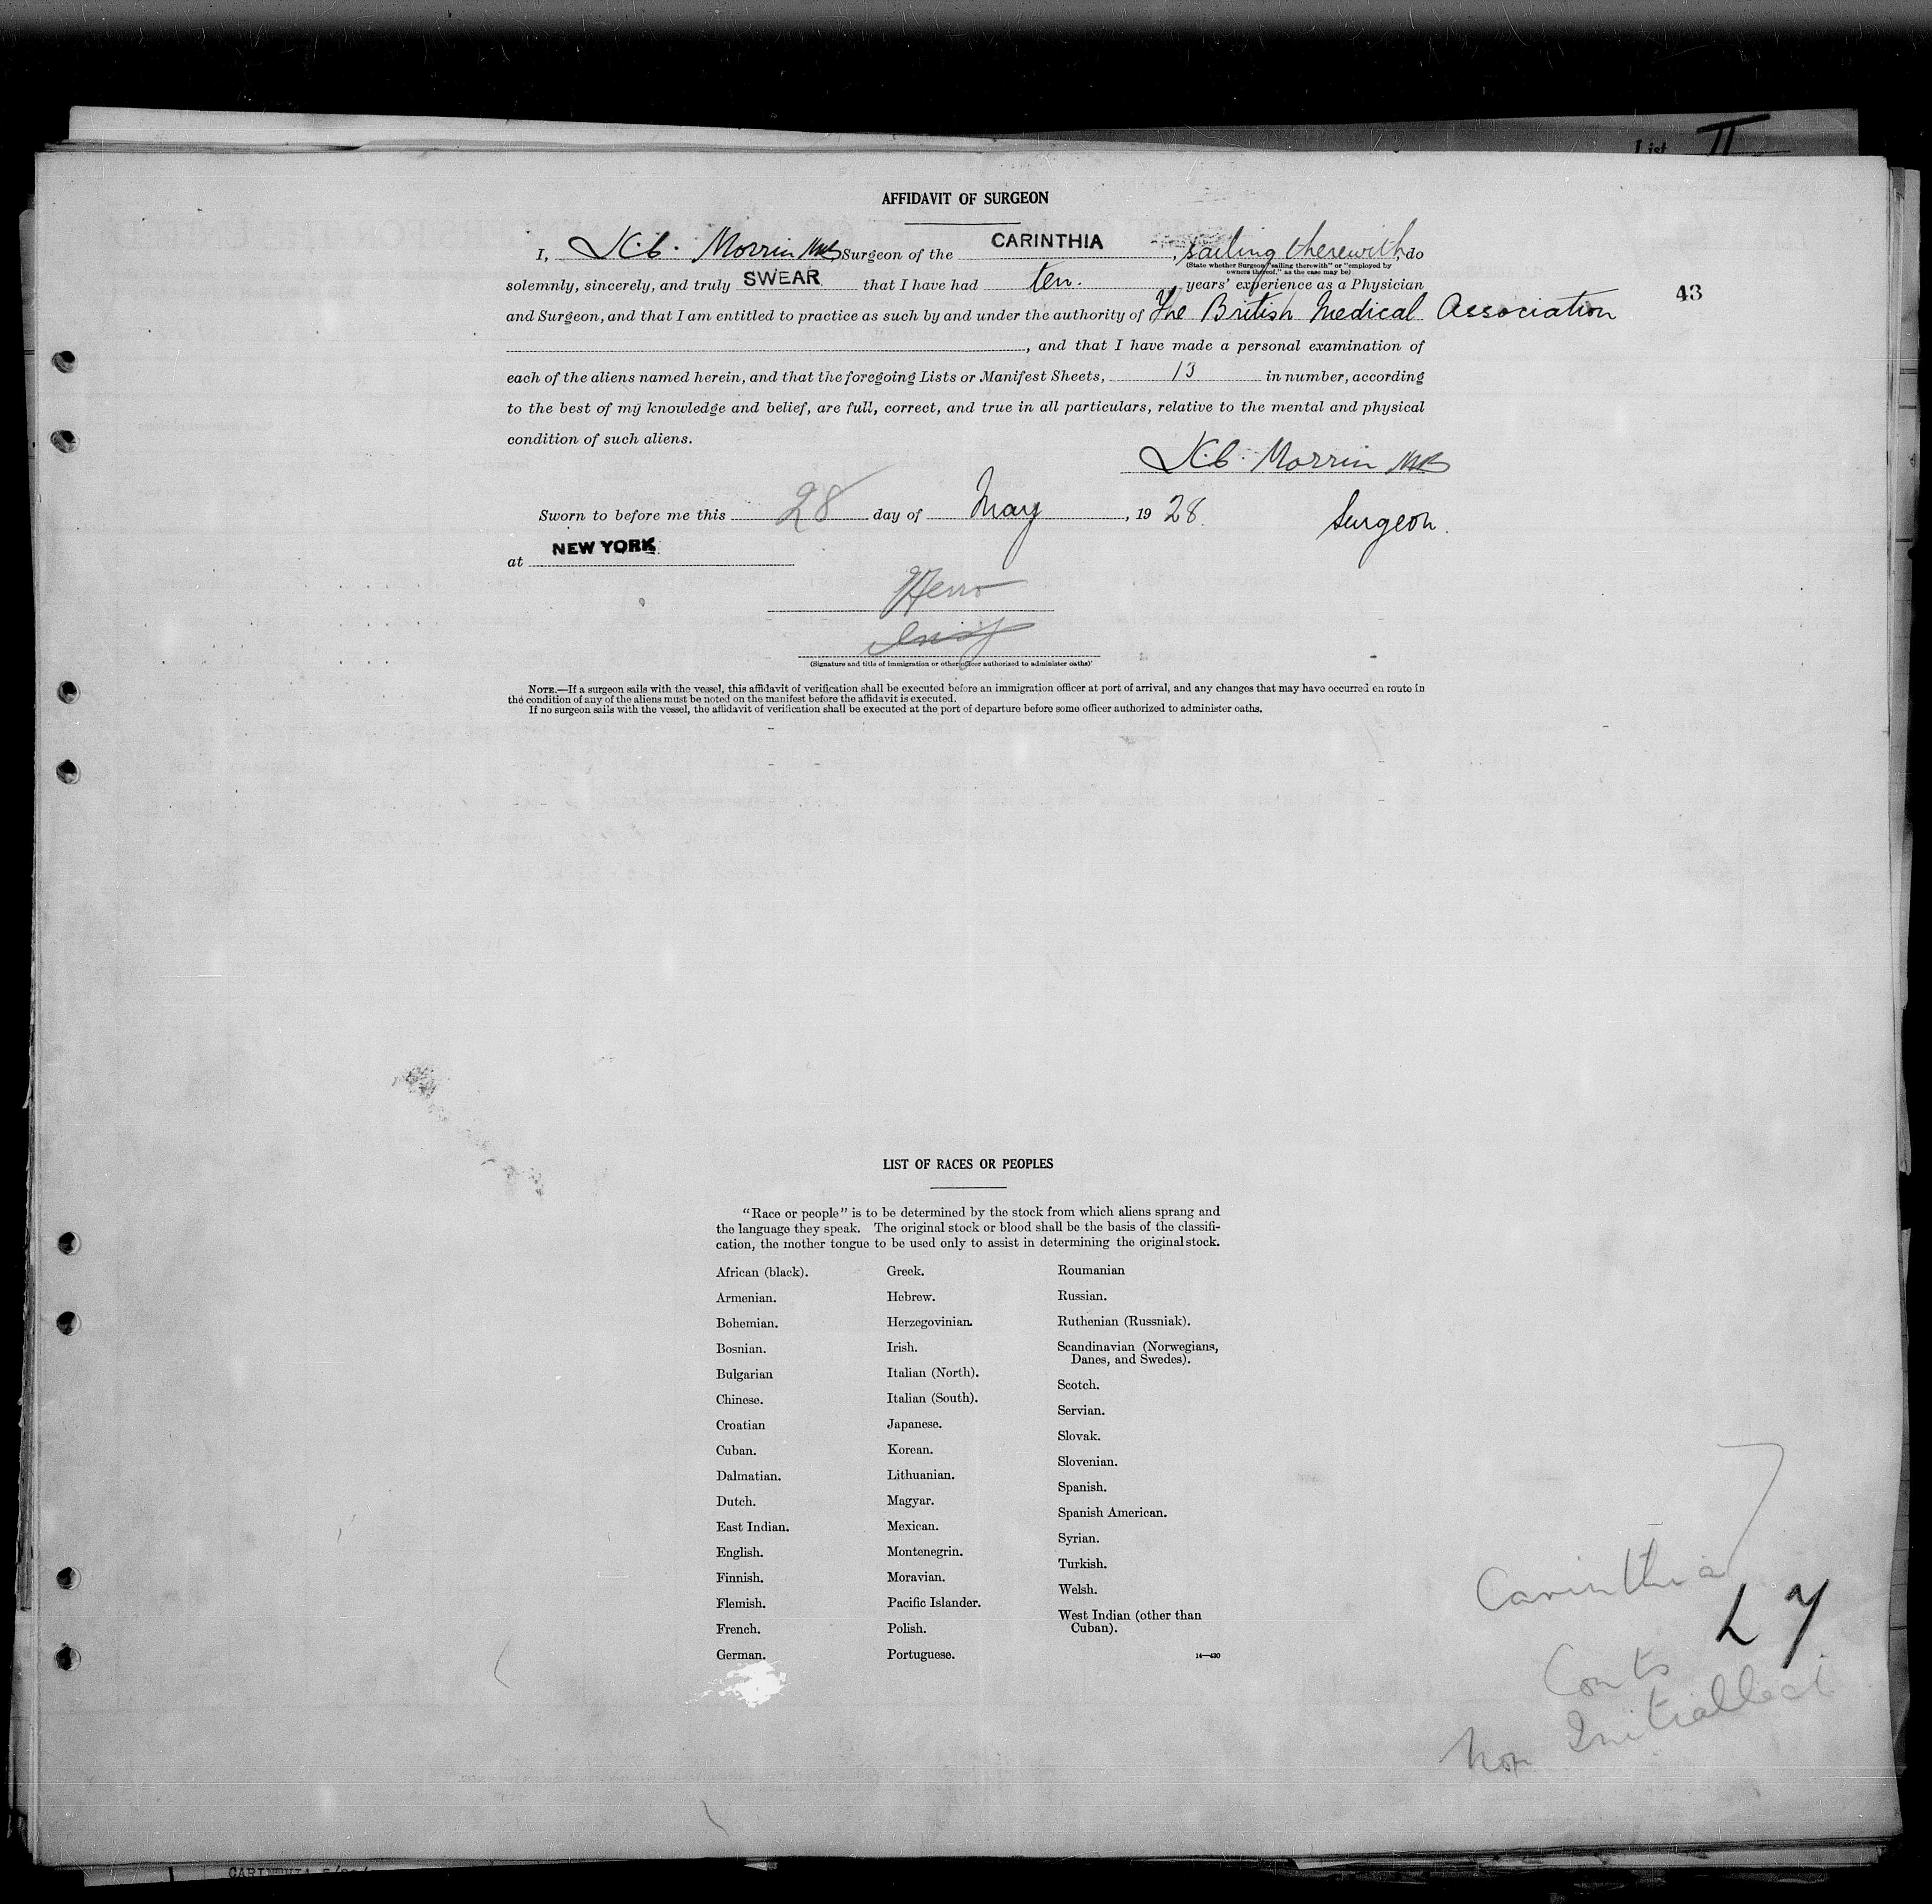 List II
AFFIDAVIT OF SURGEON
I, K.C. Morrin MB Surgeon of the CARINTHIA, sailing therewith, do
(State whether Surgeon "sailing therewith" or "employed by
owners thereof," as the case may be)
solemnly, sincerely, and truly SWEAR that I have had ten. years' experience as a Physician
43
and Surgeon, and that I am entitled to practice as such by and under the authority of The British Medical Association
, and that I have made a personal examination of
each of the aliens named herein, and that the foregoing Lists or Manifest Sheets, 13 in number, according
to the best of my knowledge and belief, are full, correct, and true in all particulars, relative to the mental and physical
condition of such aliens.
K.C. Morrin MB
Sworn to before me this 28 day of May, 1928. Surgeon.
at NEW YORK
(Signature and title of immigration or other officer authorized to administer oaths)
NOTE.—If a surgeon sails with the vessel, this affidavit of verification shall be executed before an immigration officer at port of arrival, and any changes that may have occurred en route in
the condition of any of the aliens must be noted on the manifest before the affidavit is executed.
If no surgeon sails with the vessel, the affidavit of verification shall be executed at the port of departure before some officer authorized to administer oaths.
LIST OF RACES OR PEOPLES
"Race or people" is to be determined by the stock from which aliens sprang and
the language they speak. The original stock or blood shall be the basis of the classifi-
cation, the mother tongue to be used only to assist in determining the original stock.
African (black).
Armenian.
Bohemian.
Bosnian.
Bulgarian
Chinese.
Croatian
Cuban.
Dalmatian.
Dutch.
East Indian.
English.
Finnish.
Flemish.
French.
German.
Greek.
Hebrew.
Herzegovinian.
Irish.
Italian (North).
Italian (South).
Japanese.
Korean.
Lithuanian.
Magyar.
Mexican.
Montenegrin.
Moravian.
Pacific Islander.
Polish.
Portuguese.
Roumanian
Russian.
Ruthenian (Russniak).
Scandinavian (Norwegians,
Danes, and Swedes).
Scotch.
Servian.
Slovak.
Slovenian.
Spanish.
Spanish American.
Syrian.
Turkish.
Welsh.
West Indian (other than
Cuban).
14—430
Carinthia
Initialled
CARINTHIA